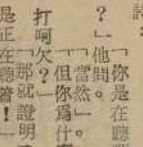 「你是在聽
？」他問。
「當然」。
「但你爲什
打呵欠？」
「那就證明
是正在聽着！」